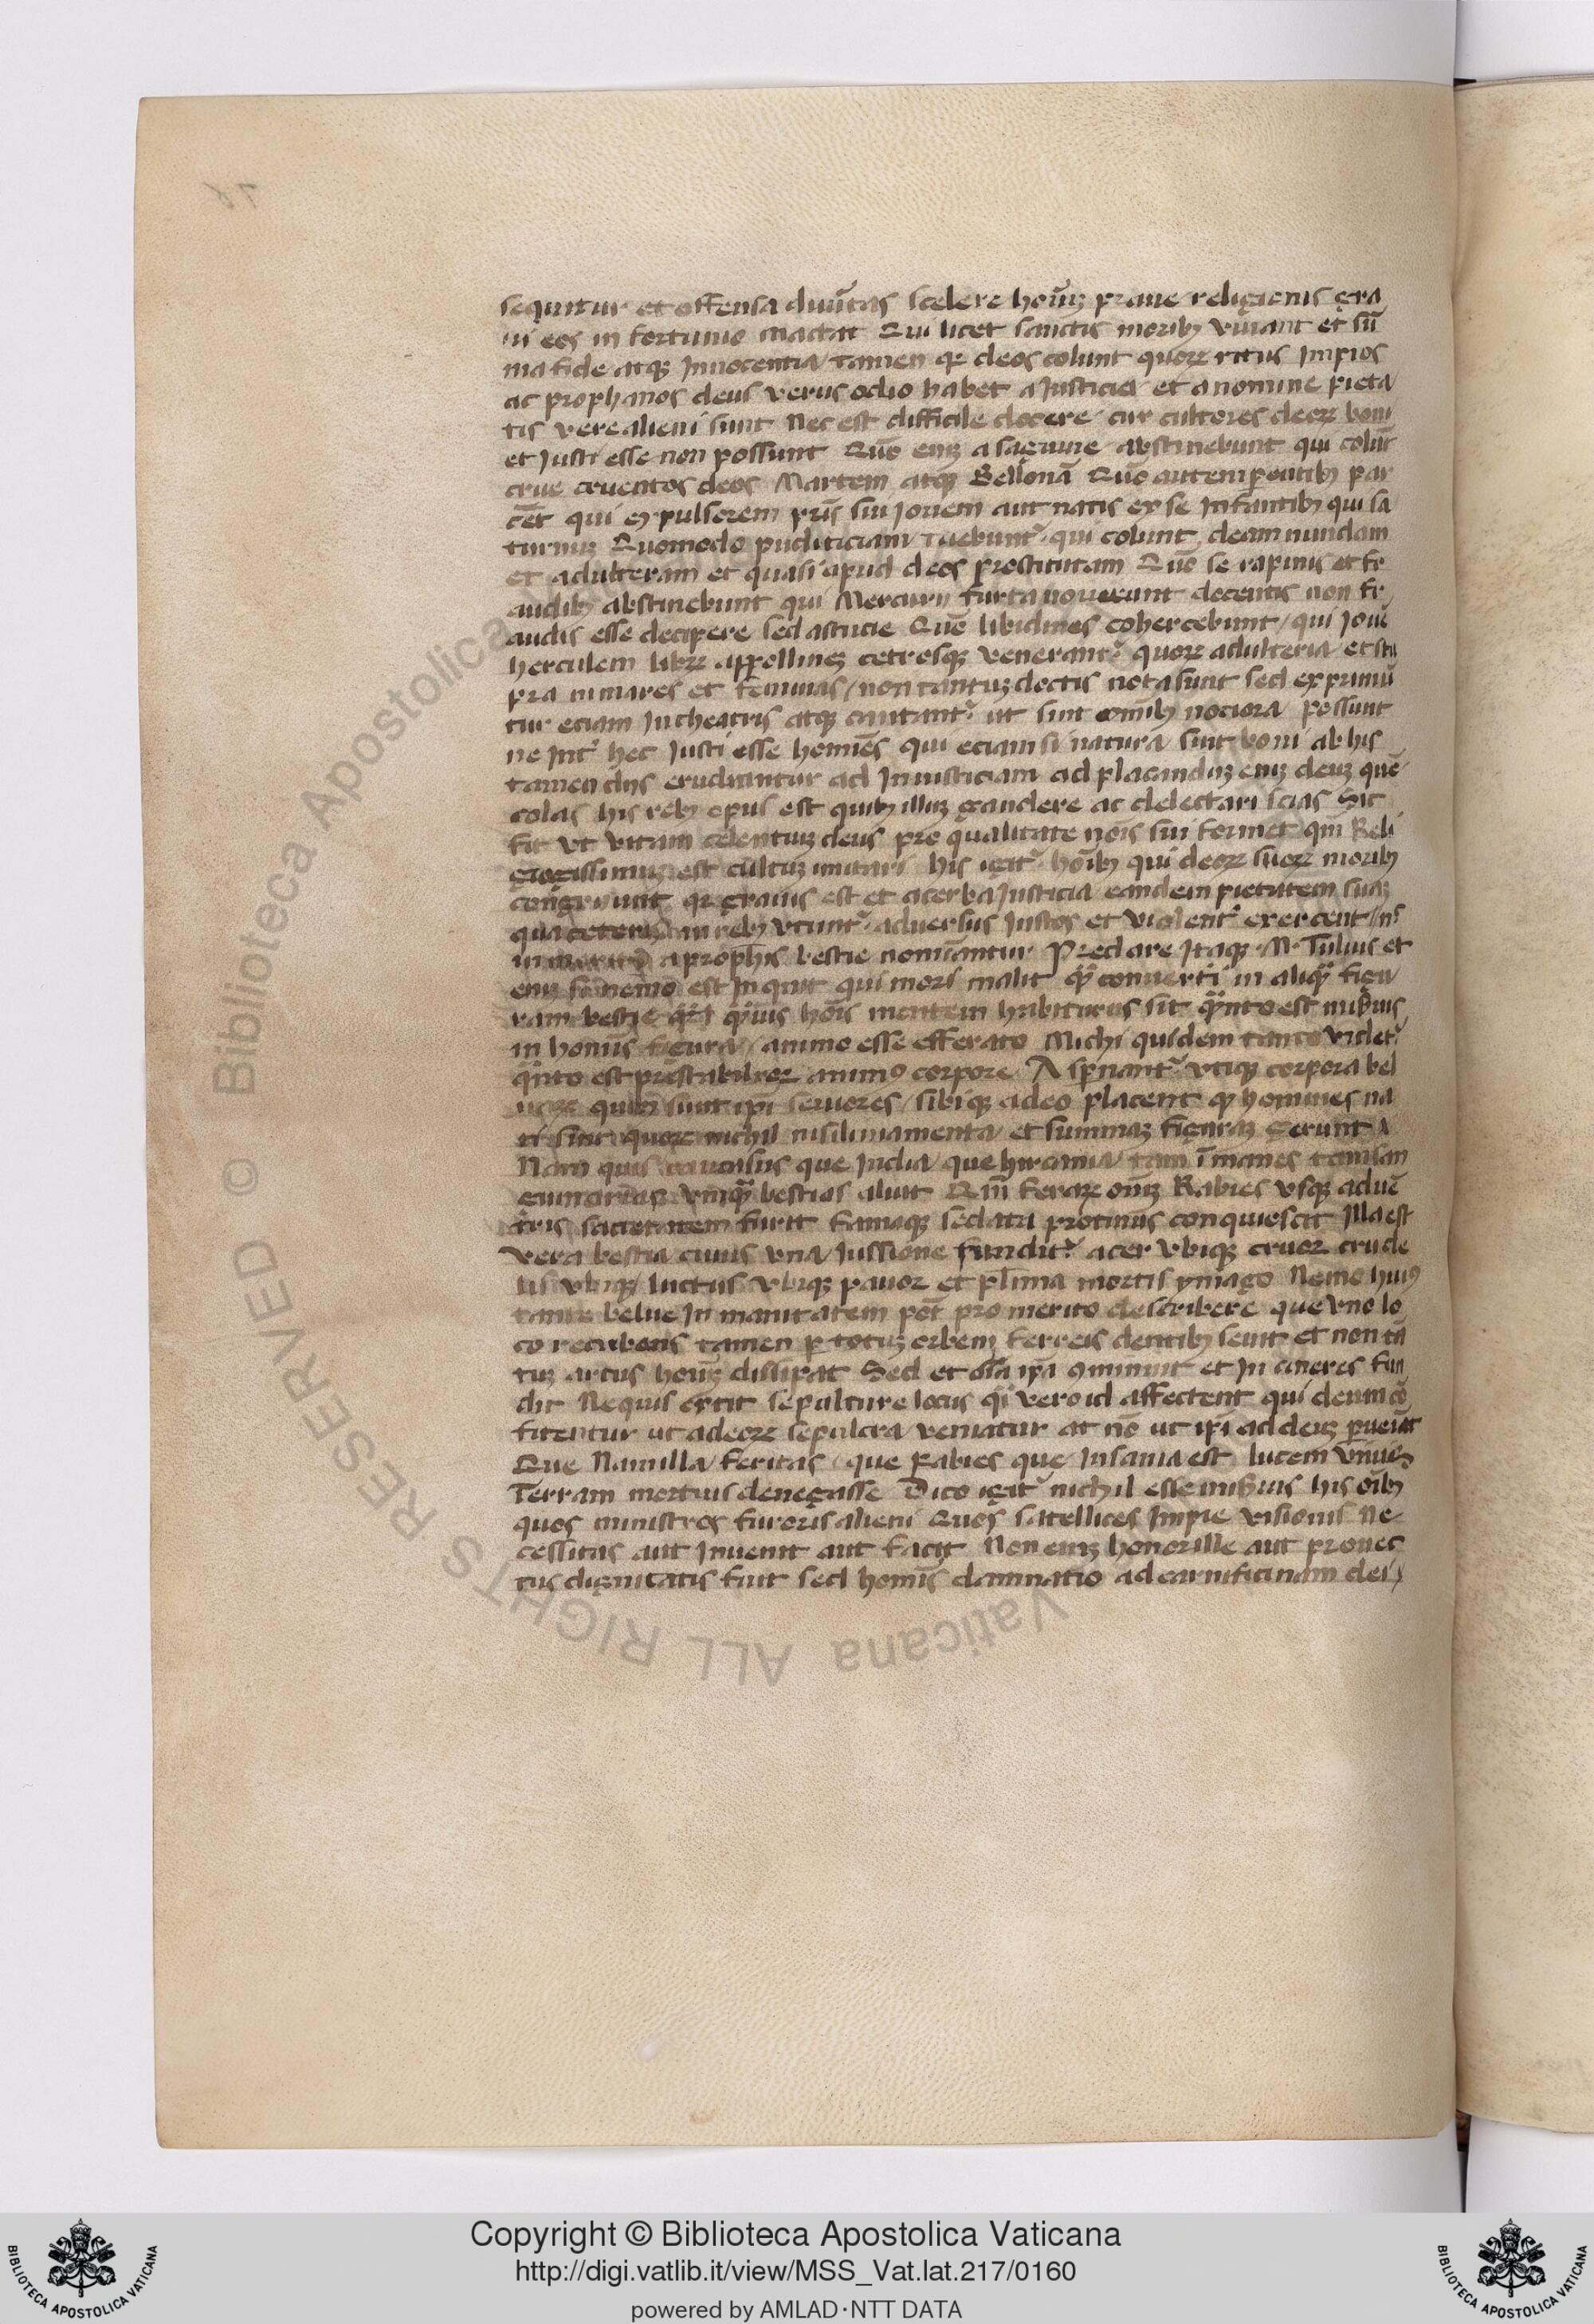 sequitur et offensa diuīitas scelere hoīuꝫ praue religionis gra
ui eos in fortunio mactat Qui licet sanctis moribꝫ viuant et sū
ma fide atqꝫ Innocentia tamen qꝛ deos colunt quoꝝ ritus Impios
ac prophanos deus verus odio habet a Iusticia et a nomine pieta
tis vere alieni sunt Nec est difficile docere cur cultores deoꝝ boni
et Iusti esse non possunt Quō enīꝫ a saguine abstinebunt qui colūt
crue cruentos deos Martem atqꝫ Bellonā Quō autem pentibꝫ par
cēt qui expulsorem pris sui Iouem aut natis ex se Infantibꝫ qui sa
turnuꝫ Quomodo pudiciciam tuebunt᷑ qui colunt deam nundam
et adulteram et quasi apud deos prostitutam Quō se rapinis et fr
audibꝫ abstinebunt qui Mercurii furta nouerunt docentis non fr
audis esse decipere sed astucie Quō libidines cohercebunt qui Iouē
herculem libꝝ appollineꝫ cetrosqꝫ venerant᷑ quoꝝ adulteria et stu
pra in mares et feminas non tantuꝫ doctis nota sunt sed exprimū
tur eciam In theatris atqꝫ cantant᷑ ut sint omībꝫ nociora possunt
ne Int᷑ hec Iusti esse homīes qui eciam si natura sint boni ab his
tamen diis erudiantur ad Iniusticiam ad placanduꝫ enīꝫ deuꝫ quē
colas his rebꝫ opus est quibꝫ illuꝫ gaudere ac delectari scias Sic
fit vt vitam colentiuꝫ deus pro qualitate nōis sui formet qm̄ Reli
giosissimus est cultuꝫ imitari his igit᷑ hoībꝫ qui deoꝝ suoꝝ moribꝫ
congruunt qꝛ grauis est et acerba Iusticia eandem pietatem suaꝫ
qua ceteris in rebꝫ vtunt᷑ aduersus Iustos et violent᷑ exercent
a prophīs bestie nomīantur Preclare Itaqꝫ M Tulius et
enīꝫ si nemo est Inquit qui mori malit qͣ conuerti in aliqͣ figu
ram bestie qͣuis hoīs mentem habiturus sit qͣnto est
in homīs figura animo esse efferato Michi quidem tanto videt᷑
qͣnto est prestabilioꝛ animꝰ corpore Aspnant᷑ vtiqꝫ corpora bel
uaꝝ quibꝫ sunt ipī seuiores sibiqꝫ adeo placent qꝫ homines na
ti sint quoꝝ nichil nisi liniamenta et summaꝫ figuraꝫ gerunt
Nam quis caucasus que India que hircania tam īmanes tamsan
guinarias vnqͣ bestias aluit Qm̄ feraꝝ omīuꝫ Rabies vsqꝫ aduē
tris sacietatem furit famaqꝫ sedata protinus conquiescit Illa est
vera bestia cuius vna Iussione fundit᷑ acer vbiqꝫ cruoꝛ crude
lis vbiqꝫ luctus vbiqꝫ pauoꝛ et plīma mortis ymago Nemo huiꝰ
tante belue In manitatem pōt pro merito describere que vno lo
co recubans tamen p totuꝫ orbem ferreis dentibꝫ seuit et non tā
tuꝫ artus hoīuꝫ dissipat Sed et ossa ipā ꝯminuit et In cineres fun
dit Nequis extit sepulture locus qͣi vero id affectent qui deum cō
fitentur ut adeoꝝ sepulcra veniatur at nō ut ipī ad deuꝫ pueniāt
Que Namilla feritas que Rabies que Insania est lucem viuis
Terram mortuis denegasse Dico igit᷑ nichil esse his oībꝫ
quos ministros furoris alieni Quos satellices Impie visionis Ne
cessitas aut Inuenit aut facit Non enīꝫ honorille aut prouec
tus dignitatis fuit sed homīs damnatio ad carnificinam dei
Copyright © Biblioteca Apostolica Vaticana
http://digi.vatlib.it/view/MSS_Vat.lat.217/0160
powered by AMLAD·NTT DATA
© Biblioteca Apostolica Vaticana ALL RIGHTS RESERVED
BIBLIOTECA APOSTOLICA VATICANA
BIBLIOTECA APOSTOLICA VATICANA